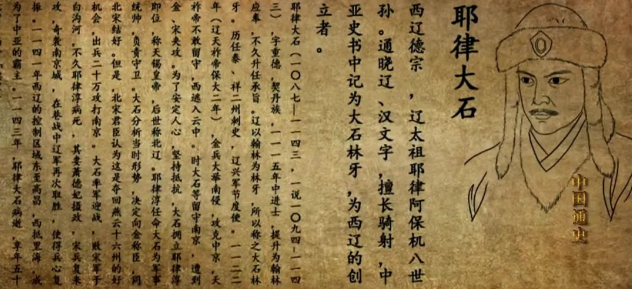 耶律大石
西辽德宗，辽太祖耶律阿保机八世
孙。通晓辽、汉文字，擅长骑射，中
亚史书中记为大石林牙，为西辽的创
立者。
中国通史
耶律大石（一〇八七—一一四三，一说一〇九四—一一四
三）字重德，契丹族，一一一五年中进士，提升为翰林
应奉，不久升任承旨。辽以翰林为林牙，所以称之大石林
牙。历任泰、祥二州刺史，辽兴军节度使。一一二二
年（辽天祚帝保大二年），金兵大举南侵，攻克中京，天
祚帝不敢留守，西逃入云中。时大石等留守南京，遭到
金、宋夹攻，为了安定人心，坚持抵抗，大石拥立耶律淳
即位，称天锡皇帝，后世称北辽。耶律淳任命大石为军事
统帅，负责守卫。大石分析当时形势，决定向金称臣，同
北宋结好。但是，北宋君臣认为这是夺回燕云十六州的好
机会，出兵二十万攻打南京。大石率军迎战，败宋军于
白沟河。不久耶律淳病死，其妻萧德妃摄政，宋兵复来
攻，奇袭南京城，在巷战中辽军再次取胜，使得兵心复
振。一一四一年西辽的控制区域东至高昌，西抵里海，成
为了中亚的霸主。一一四三年，耶律大石病逝，享年五十